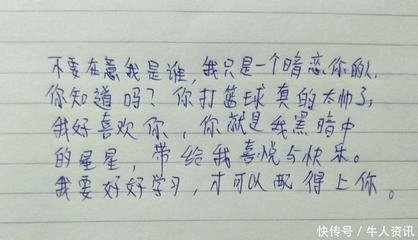 不要在意我是谁，我只是一个暗恋你的人，
你知道吗？你打篮球真的太帅了，
我好喜欢你，你就是我黑暗中
的星星，带给我喜悦与快乐。
我要好好学习，才可以配得上你。
快传号/牛人资讯